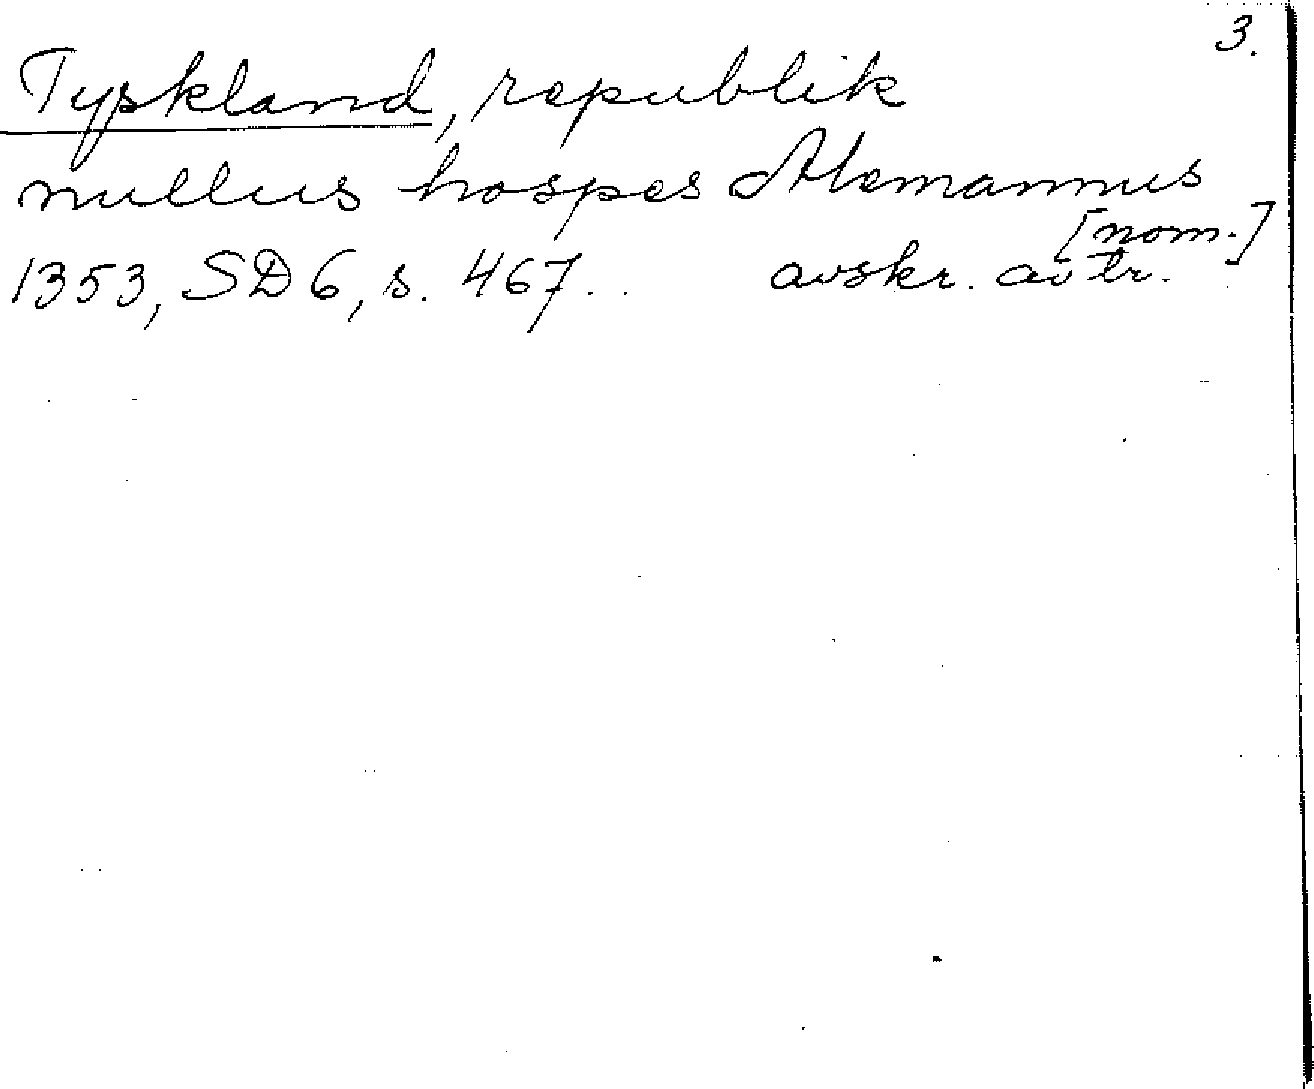 3.
Tyskland, republik
nullus hospes Alemannus
[nom.]
1353, SD 6, s. 467. avskr. av tr.